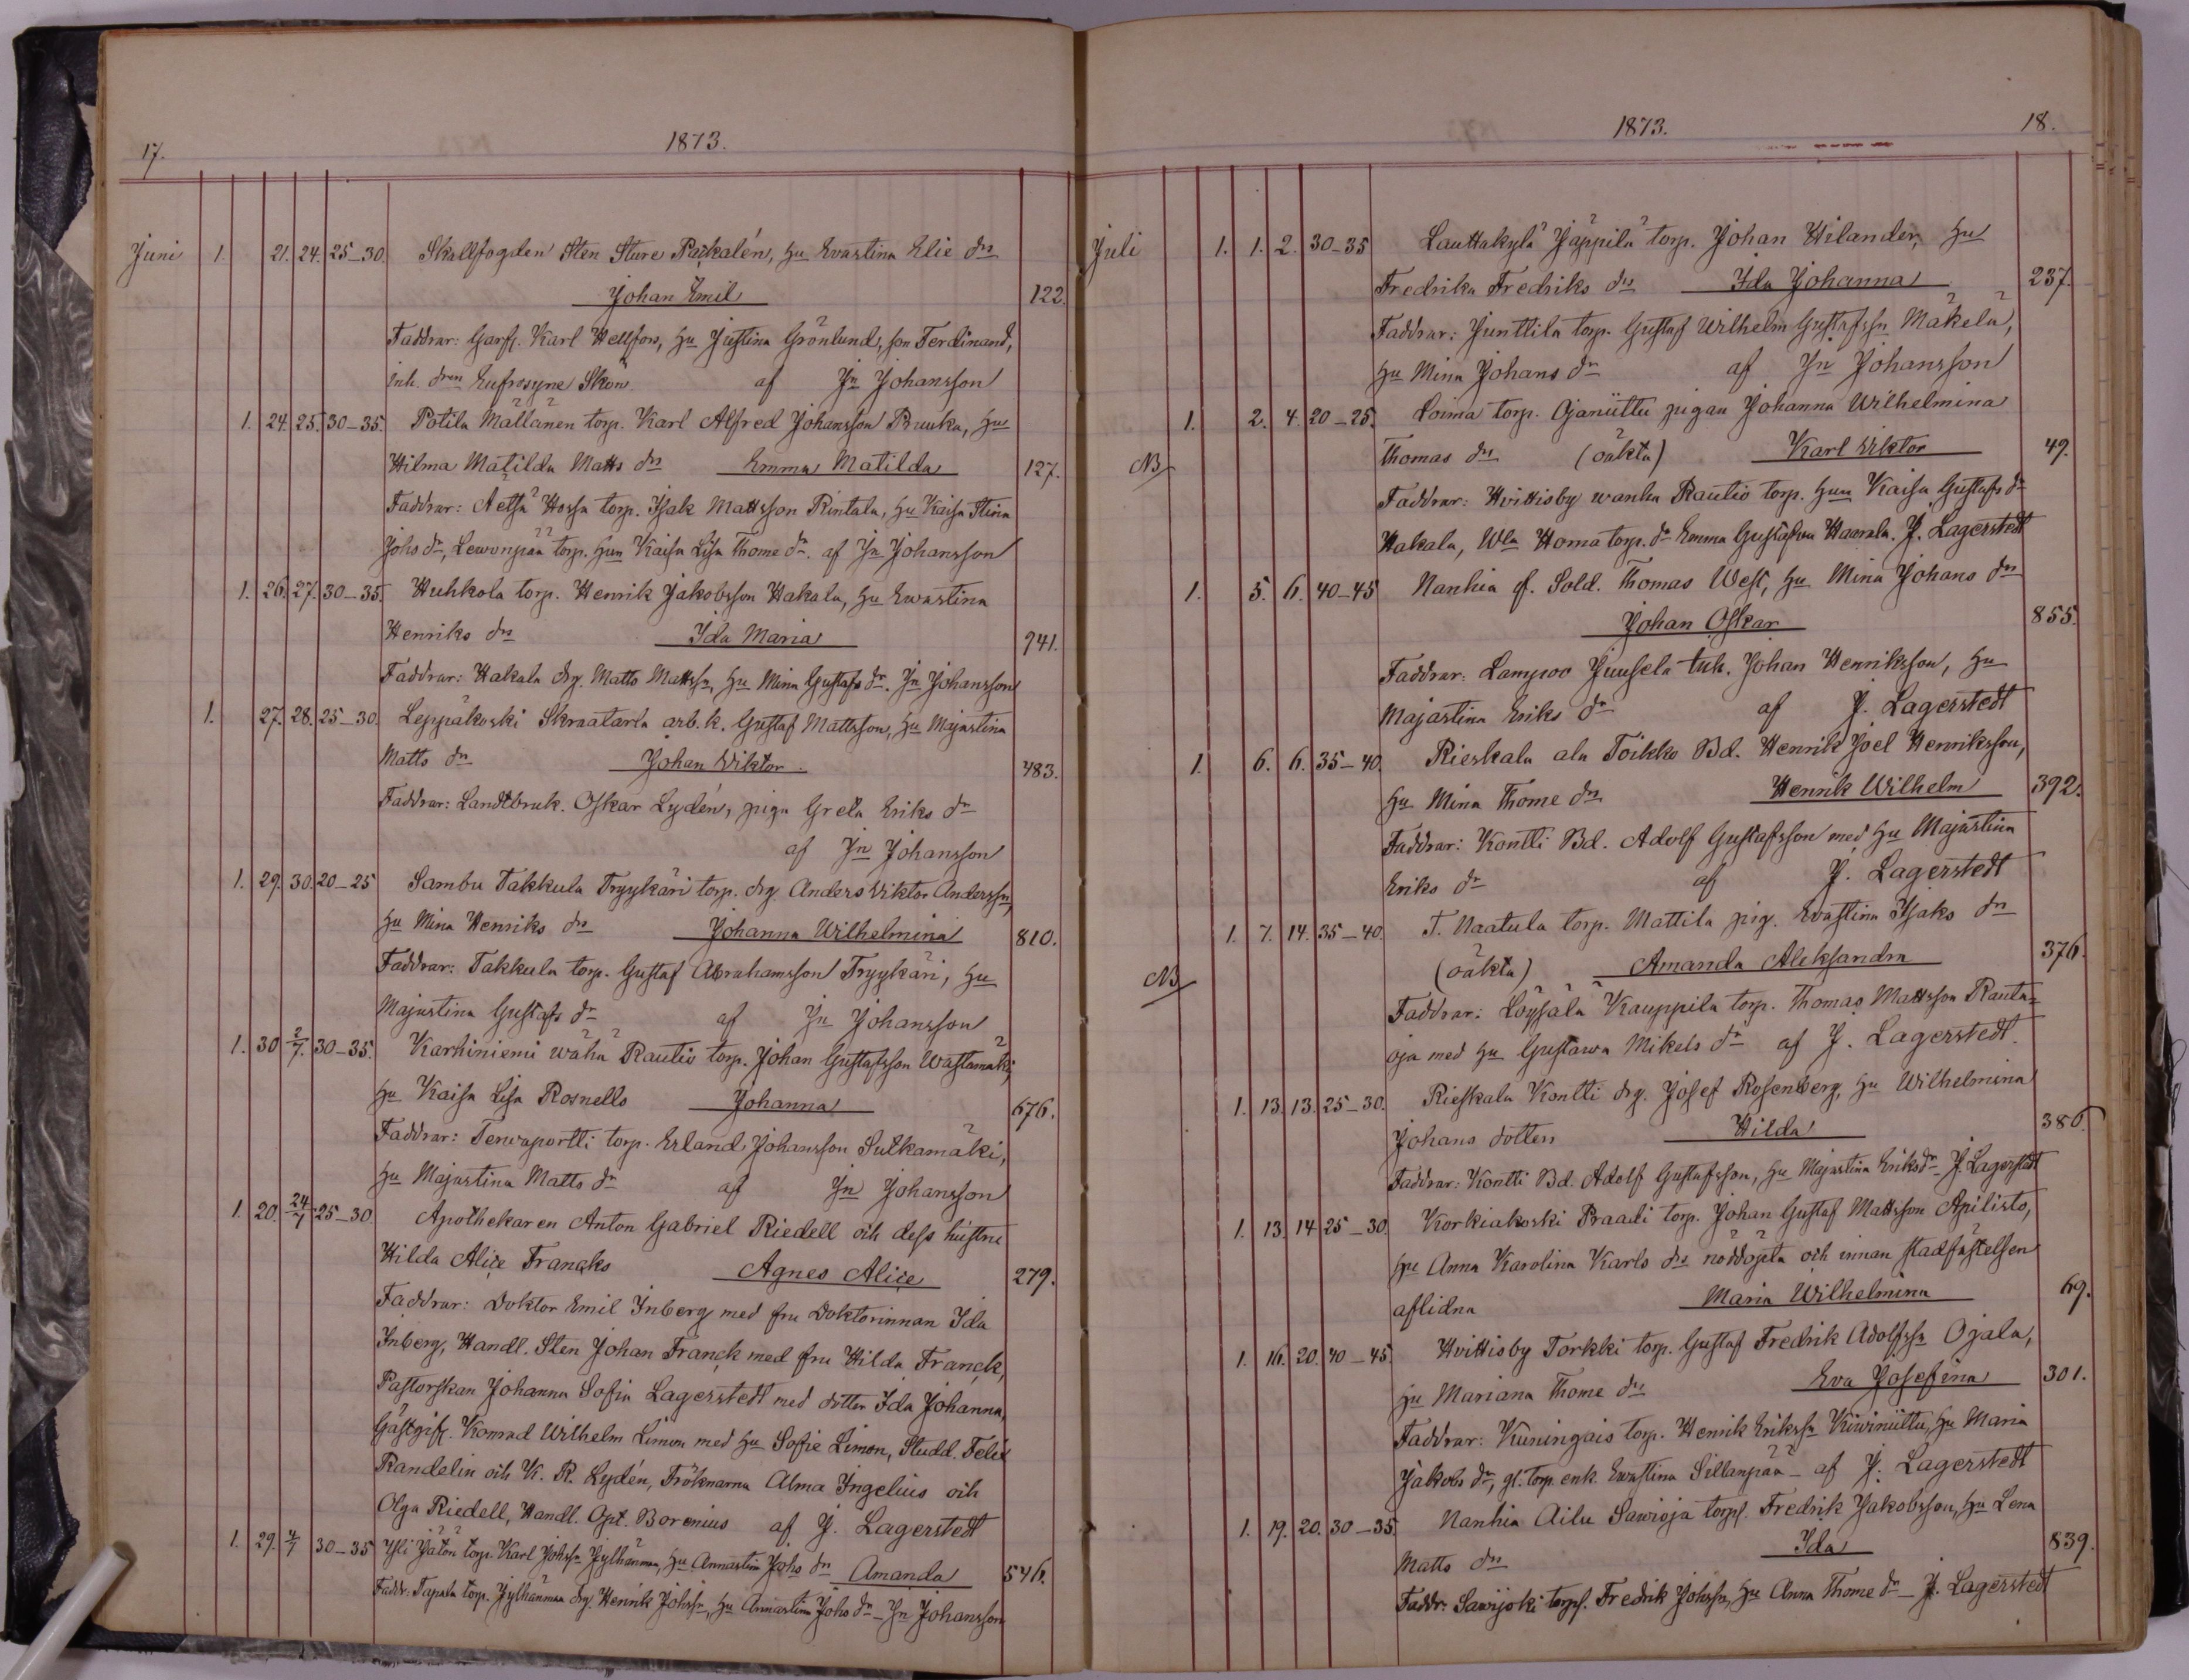 17.
1873.
Juni 1. 21. 24. 25-30. Skallfogden Sten Sture Packalén, hu Evastina Elie dr
Johan Emil 122.
Faddrar: Garfv. Karl Hellfors, hu Justina Grönlund, son Ferdinand,
inh. drn Eufrosyne Skön af Jn Johansson
1. 24. 25. 30-35. Potila Mällänen torp. Karl Alfred Johansson Pruuka, hu
Hilma Matilda Matts dr Emma Matilda 127.
Faddrar: Aetsä Hossa torp. Isak Mattsson Rintala, hu Kaisa Stina
Johs dr, Lewonpää torp. hun Kaisa Lisa Thome dr. af Jn Johansson
1. 26. 27. 30-35. Huhkola torp. Henrik Jakobsson Hakala, hu Ewastina
Henriks dr Ida Maria 941.
Faddrar: Hakala drg. Matts Mattsn, hu Mina Gustafs dr. Jn Johansson
1. 27. 28. 25-30. Leppäkoski Skraatarla arb. k. Gustaf Mattsson, hu Majastina
Matts dr Johan Viktor 483.
Faddrar: Landtbruk. Oskar Lydén, piga Greta Eriks dr
af Jn Johansson
1. 29. 30. 20-25 Sambu Takkula Tryykäri torp. drg. Anders Viktor Anderssn,
hu Mina Henriks dr Johanna Wilhelmina 810.
Faddrar: Takkula torp. Gustaf Abrahamsson Tryykäri, hu
Majastina Gustafs dr af Jn Johansson
1. 30 2/7. 30-35. Karhiniemi wähä Rautio torp. Johan Gustafsson Wastamäki,
hu Kaisa Lisa Rosnells Johanna 676.
Faddrar: Terwaportti torp. Erland Johansson Sulkamäki,
hu Majastina Matts dr af Jn Johansson
1. 20. 24/7 25-30. Apothekaren Anton Gabriel Riedell och dess hustru
Hilda Alice Francks Agnes Alice 279.
Faddrar: Doktor Emil Inberg med fru Doktorinnan Ida
Inberg, Handl. Sten Johan Franck med fru Hilda Franck,
Pastorskan Johanna Sofia Lagerstedt med dotter Ida Johanna,
Gästgif. Konrad Wilhelm Limon med hu Sofie Limon, Studd. Felix
Randelin och K. R. Lydén, Fröknarna Alma Ingelius och
Olga Riedell, Handl. Opt. Borenius af J. Lagerstedt
1. 29. 4/7 30-35 Yli Jäton torp. Karl Johssn Jylhänmaa, hu Annastina Johs dr Amanda 546.
Faddr: Tapala torp. Jylhänmaa drg. Henrik Johssn, hu Annastina Johs dr - Jn Johansson
1873.
18.
Juli 1. 1. 2. 30-35 Lauttakylä Jäppilä torp. Johan Hilander, hu
Fredrika Fredriks dr Ida Johanna 237.
Faddrar: Junttila torp. Gustaf Wilhelm Gustafssn Mäkelä,
hu Mina Johans dr af Jn Johansson
1. 2. 4. 20-25. Loima torp. Ojaniittu pigan Johanna Wilhelmina
NB Thomas dr (oäkta) Karl Viktor 49.
Faddrar: Hvittisby wanha Rautio torp. hun Kaisa Gustafs dr
Hakala, Wla Homa torp. dr Emma Gustafsdr Haarala. J. Lagerstedt
1. 5. 6. 40-45 Nanhia f. Sold. Thomas West, hu Mina Johans dr
Johan Oskar 855.
Faddrar: Lampoo Juusela inh. Johan Henriksson, hu
Majastina Eriks dr af J. Lagerstedt
1. 6. 6. 35-40. Rieskala ala Toikko Bd. Henrik Joel Henriksson,
hu Mina Thome dr Henrik Wilhelm 392.
Faddrar: Kontti Bd. Adolf Gustafsson med hu Majastina
Eriks dr af J. Lagerstedt
1. 7. 14. 35-40. T. Naatula torp. Mattila pig. Evastina Isaks dr
NB (oäkta) Amanda Aleksandra 376.
Faddrar: Löysälä Kauppila torp. Thomas Mattsson Rauta=
oja med hu Gustawa Mikels dr af J. Lagerstedt.
1. 13. 13. 25-30. Rieskala Kontti drg. Josef Rosenberg, hu Wilhelmina
Johans dotter Hilda 386.
Faddrar: Kontti Bd. Adolf Gustafsson, hu Majastina Eriksdr J. Lagerstedt
1. 13. 14 25-30. Korkiakoski Praali torp. Johan Gustaf Mattsson Apilisto,
hu Anna Karolina Karls dr nöddöpta och innan stadfästelsen
aflidna Maria Wilhelmina 69.
1. 16. 20. 40-45. Hvittisby Torkki torp. Gustaf Fredrik Adolfssn Ojala,
hu Mariana Thome dr Eva Josefina 301.
Faddrar: Kuningais torp. Henrik Erikssn Kiwiniittu, hu Maria
Jakobs dr, gl. torp. enk. Ewastina Sillanpää - af J. Lagerstedt
1. 19. 20. 30-35 Nanhia Ailu Sawioja torpf. Fredrik Jakobsson, hu Lena
Matts dr Ida 839.
Faddr: Sawijoki torpf. Fredrik Johssn, hu Anna Thome dr - J. Lagerstedt